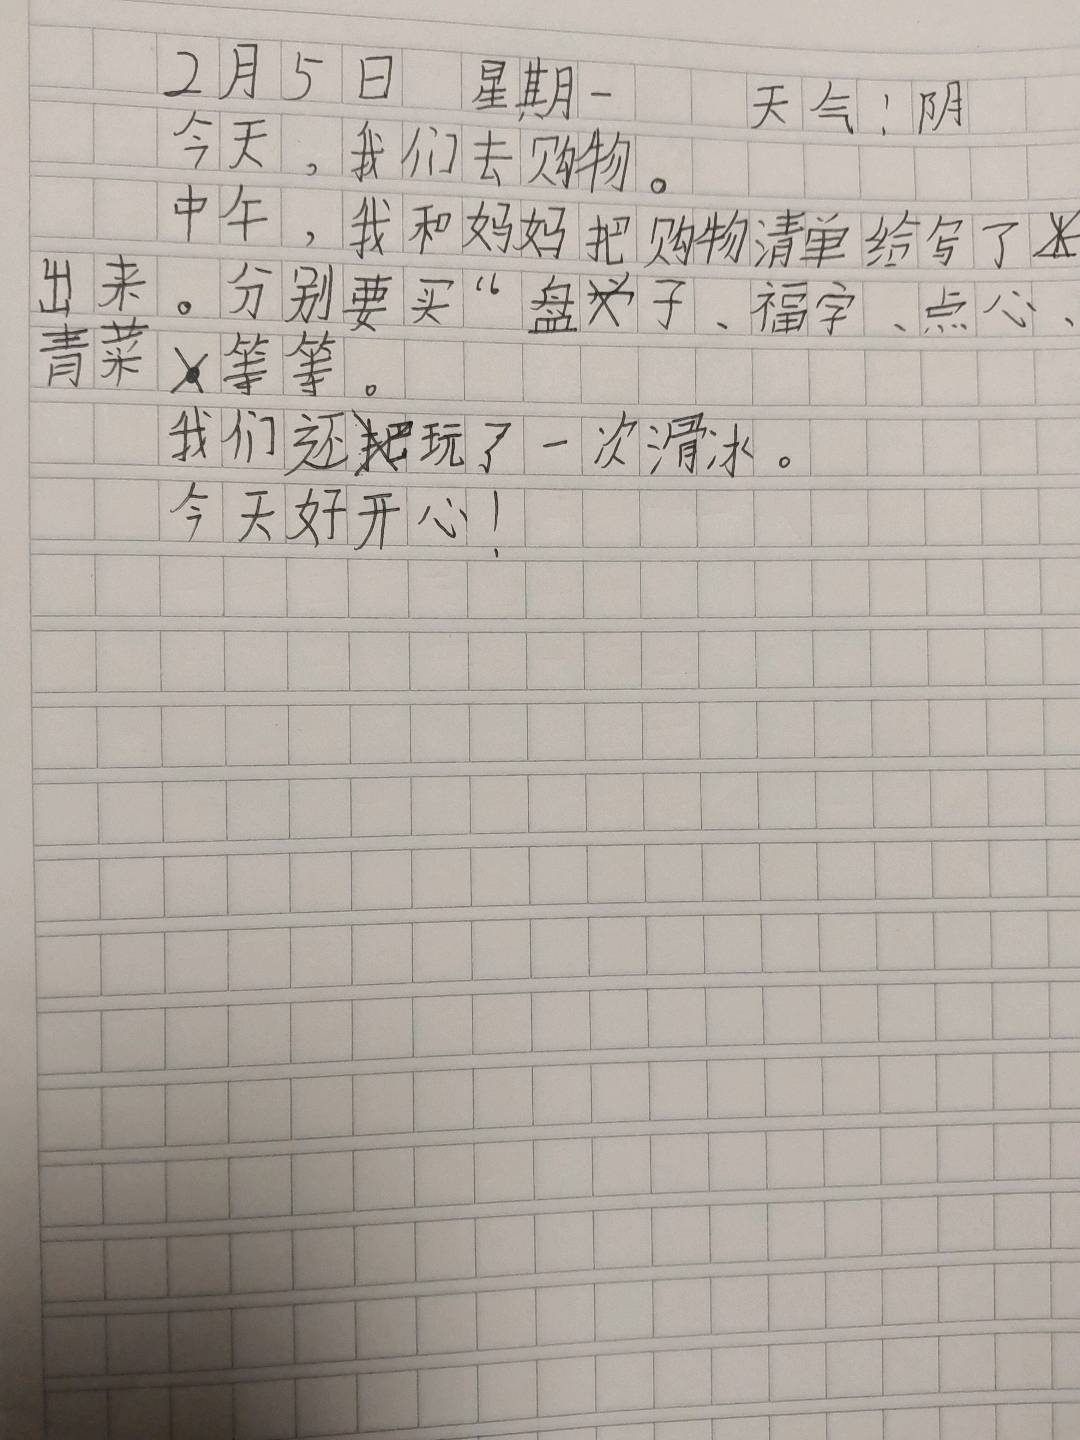 2月5日 星期一 天气:阴
今天,我们去购物。
中午,我和妈妈把购物清单给写了
出来。分别要买“盘子、福字、点心、
青菜等等。
我们还玩了一次滑冰。
今天好开心!